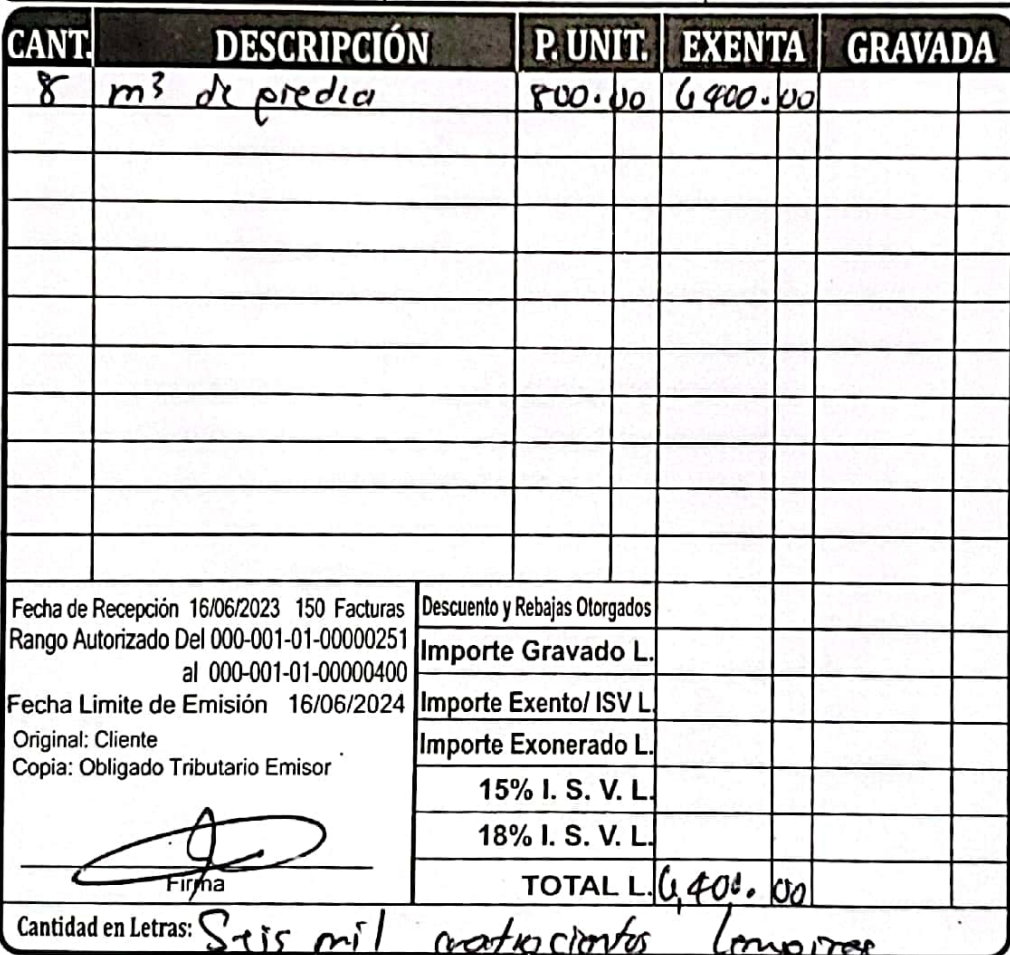 CANT. DESCRIPCIÓN P. UNIT. EXENTA GRAVADA
8 m³ de piedra 800.00 6400.00
Fecha de Recepción 16/06/2023 150 Facturas
Rango Autorizado Del 000-001-01-00000251
al 000-001-01-00000400
Fecha Limite de Emisión 16/06/2024
Original: Cliente
Copia: Obligado Tributario Emisor
Firma
Descuento y Rebajas Otorgados
Importe Gravado L.
Importe Exento/ ISV L.
Importe Exonerado L.
15% I. S. V. L.
18% I. S. V. L.
TOTAL L. 6,400.00
Cantidad en Letras: Seis mil cuatrocientos Lempiras